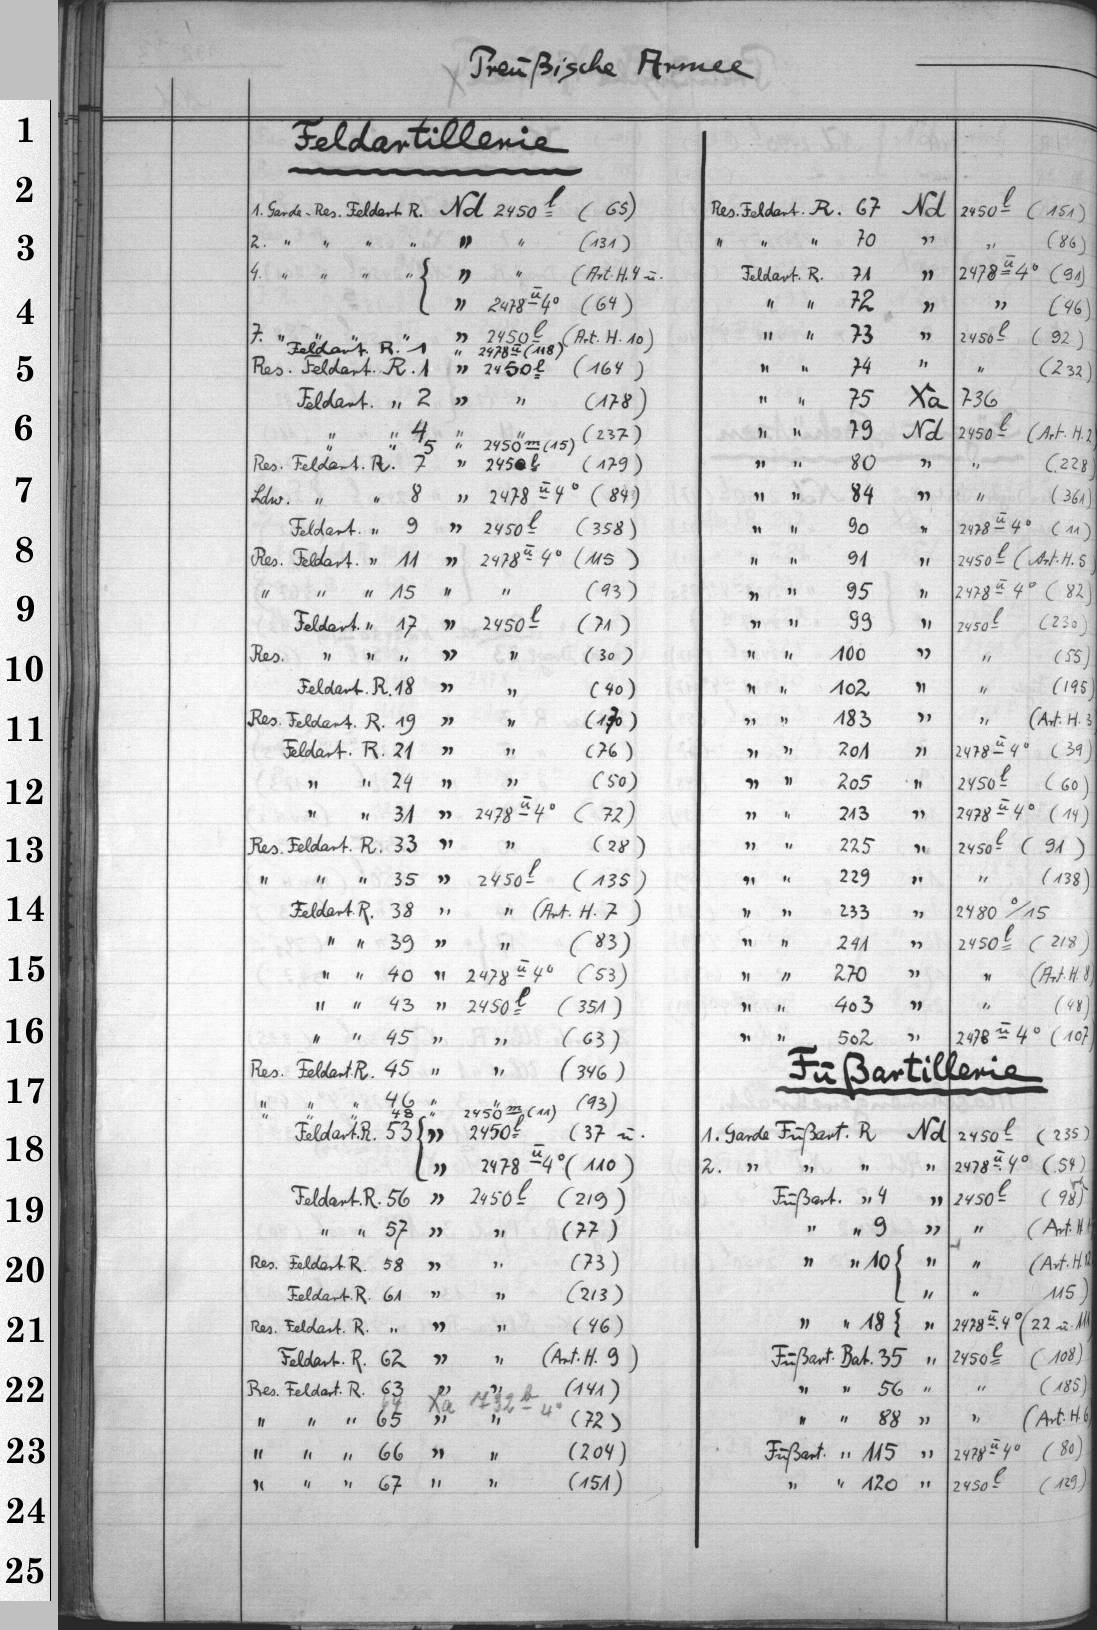 Preußische Armee
Feldartillerie
1. Garde-Res. Feldart. R. Nd 2450 l (65)
2. " " " " " " (131)
4. " " " " { " " (Art. H. 4 u.
" 2478 ü 4° (64)
7. " " " " " 2450 l (Art. H. 10)
Feldart. R. 1 " 2478 ü (118)
Res. Feldart. R. 1 " 2450 l (164)
Feldart. " 2 " " (178)
" " 4 " " (237)
" " 5 " 2450 m (15)
Res. Feldart. R. 7 " 2450 l (179)
Ldw. " " 8 " 2478 ü 4° (84)
Feldart. " 9 " 2450 l (358)
Res. Feldart. " 11 " 2478 ü 4° (115)
" " " 15 " " (93)
Feldart. " 17 " 2450 l (71)
Res. " " " " " (30)
Feldart. R. 18 " " (40)
Res. Feldart. R. 19 " " (170)
Feldart. R. 21 " " (76)
" " 24 " " (50)
" " 31 " 2478 ü 4° (72)
Res. Feldart. R. 33 " " (28)
" " " 35 " 2450 l (135)
Feldart. R. 38 " " (Art. H. 7)
" " 39 " " (83)
" " 40 " 2478 ü 4° (53)
" " 43 " 2450 l (351)
" " 45 " " (63)
Res. Feldart. R. 45 " " (346)
" " " 46 " " (93)
" " " 48 " 2450 m (11)
Feldart. R. 53 { " 2450 l (37 u.
" 2478 ü 4° (110)
Feldart. R. 56 " 2450 l (219)
" " 57 " " (77)
Res. Feldart. R. 58 " " (73)
Feldart. R. 61 " " (213)
Res. Feldart. R. " " " (46)
Feldart. R. 62 " " (Art. H. 9)
Res. Feldart. R. 63 " " (141)
64 Xa 1732 b 4°
" " " 65 " " (72)
" " " 66 " " (204)
" " " 67 " " (151)
Res. Feldart. R. 67 Nd 2450 l (151)
" " " 70 " " (86)
Feldart. R. 71 " 2478 ü 4° (91)
" " 72 " " (46)
" " 73 " 2450 l (92)
" " 74 " " (232)
" " 75 Xa 736
" " 79 Nd 2450 l (Art. H. 2
" " 80 " " (228
" " 84 " " (361)
" " 90 " 2478 ü 4° (11)
" " 91 " 2450 l (Art. H. 5
" " 95 " 2478 ü 4° (82)
" " 99 " 2450 l (230)
" " 100 " " (55)
" " 102 " " (195)
" " 183 " " (Art. H. 3
" " 201 " 2478 ü 4° (39)
" " 205 " 2450 l (60)
" " 213 " 2478 ü 4° (14)
" " 225 " 2450 l (91)
" " 229 " " (138)
" " 233 " 2480 o/15
" " 241 " 2450 l (218)
" " 270 " " (Art. H. 8)
" " 403 " " (48)
" " 502 " 2478 ü 4° (107
Fußartillerie
1. Garde Fußart. R Nd 2450 l (235)
2. " " " " 2478 ü 4° (54)
Fußart. " 4 " 2450 l (98)
" " 9 " " (Art. H.
" " 10 { " " (Art. H. 12
" " 115)
" " 18 { " 2478 ü 4° (22 u. 111
Fußart. Bat. 35 " 2450 l (108)
" " 56 " " (185)
" " 88 " " (Art. H. 6
Fußart. " 115 " 2478 ü 4° (80)
" " 120 " 2450 l (129)
1
2
3
4
5
6
7
8
9
10
11
12
13
14
15
16
17
18
19
20
21
22
23
24
25